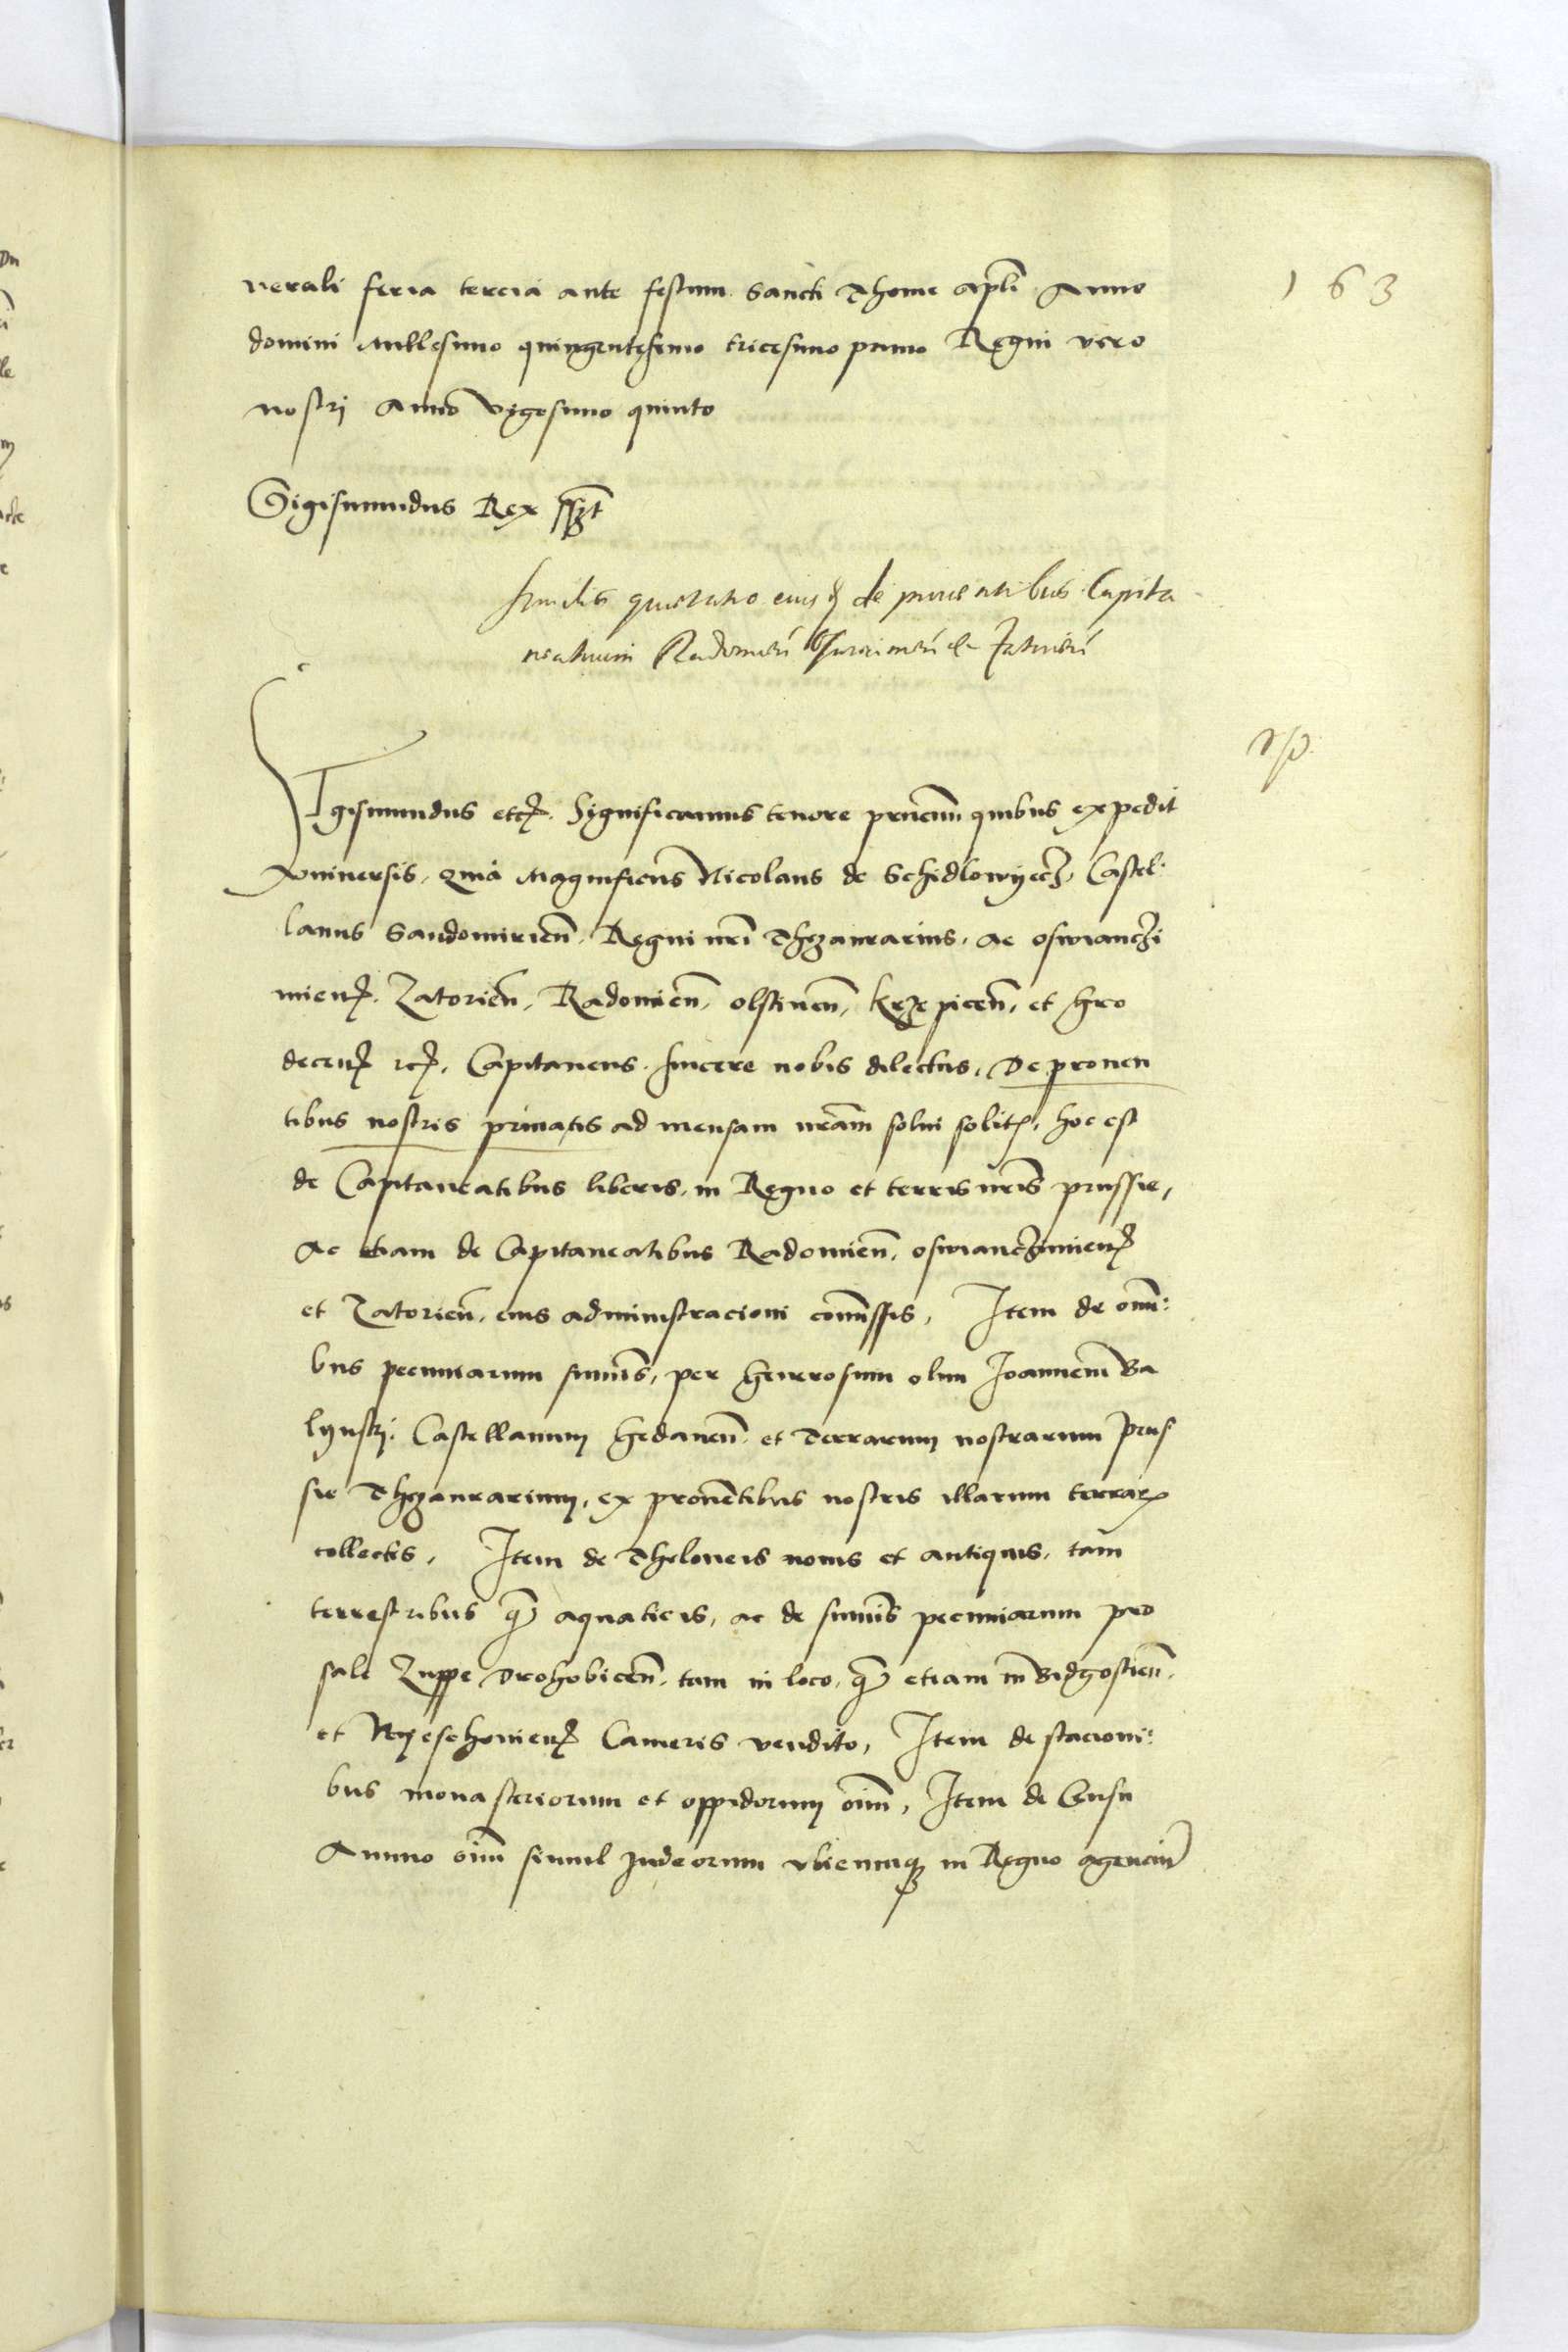 nerali feria tercia ante festum Sancti Thome apli Anno
163
domini Millesimo quingentesimo tricesimo primo Regni vero
nostri Anno vigesimo quinto
Sigismundus Rex sszt
Similis quietatio eiusd de proventibus Capita
neatuum Radomień Osvacimeń et Zatorień
Sigismundus etcz. Significamus tenore pńcium quibus expedit
Vniuersis, quia Magnificus Nicolaus de Schidlowyecz, Castel:
lanus Sandomirień, Regni nrī Thezaurarius, ac oswianczi
mienz, Zatorień, Radomień, olstineń, krzepiceń, et Gro
decenz etcz, Capitaneus sincere nobis dilectus, De prouen
tibus nostris priuatis ad mensam nrām solui solitz, hoc est
de Capitaneatibus liberis, in Regno et terris nrīs prussie,
Ac etiam de Capitaneatibus Radomień, oswianczimienz
et Zatorień, eius administracioni commissis, Item de omni:
bus pecuniarum summis, per Generosum olim Joannem Ba
lynskj, Castellanum Gedaneń, et Terrarum nostrarum Prus
sie Thezaurarium, ex prouentibus nostris illarum terrarz
collectis, Item de Theloneis nouis et antiquis, tam
terrestribus q̃ aquaticis, ac de summis pecuniarum pro
sale Zuppe Drohobiceń, tam in loco, q̃ etiam in Bidgostień,
et Nyeschouienz Cameris vendito, Item de stacioni:
bus monasteriorum et oppidorum oīm, Item de Censu
Annuo oīm simul Judeorum vbicunqz in Regno agencium